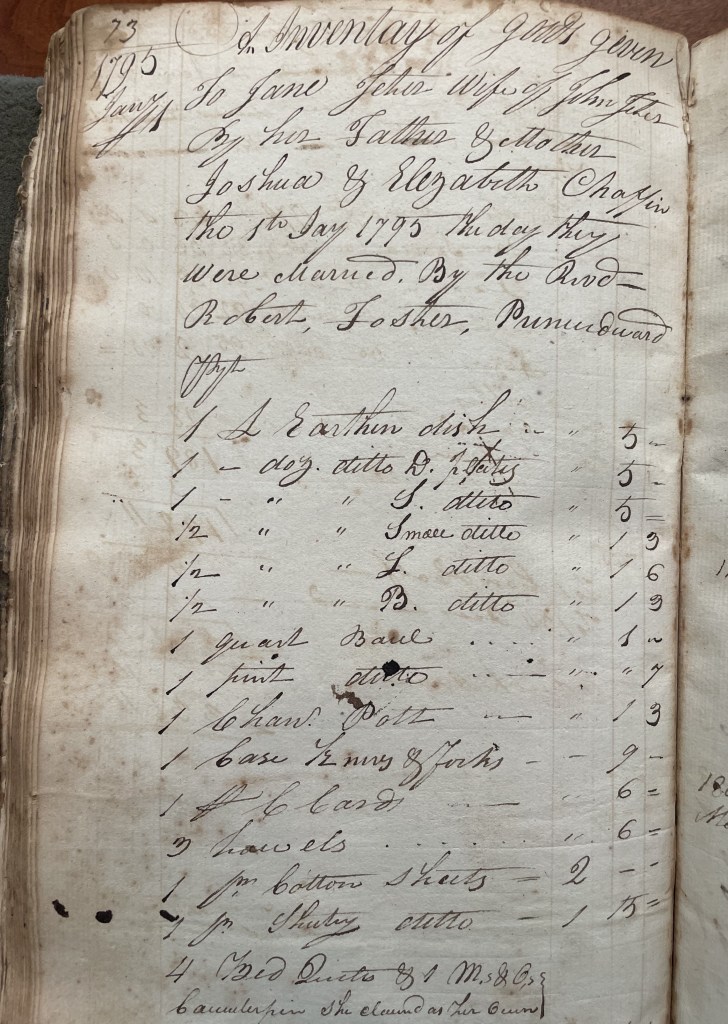 73
An Inventary of goods given
1795
Jany 1
To Jane Jeter Wife of John Jeter
By her Father & Mother
Joshua & Elezabeth Chaffin
the 1st Jay 1795 the day they
were Married. By the Revd
Robert, Foster,
1 L Earthin dish " 5 -
1 - doz. ditto D. plates " 5 -
1 - " " S. ditto " 5 =
1/2 " " Smale ditto " 1 3
1/2 " " L. ditto " 1 6
1/2 " " B. ditto " 1 3
1 quart Baul " 1 -
1 pint ditto " " 7
1 Cham. Pott " 1 3
1 Case knivs & Forks - - 9 -
1 pr C Cards " 6 =
3 towels " 6 =
1 pr Cotton Sheets = 2 - -
1 pr ditto - 1 15 =
4 Bed & 1
Caunterpin She claimd as Her Own